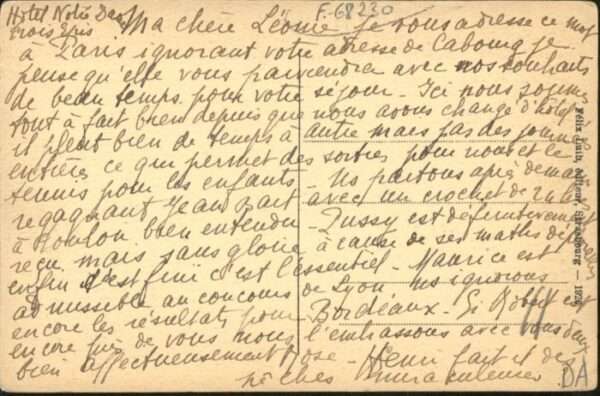 Hotel Notre Dame
Trois Epis
F-68230
Ma chère Léonie je vous adresse ce mot
à Paris ignorant votre adresse de Cabourg je
pense qu'elle vous parviendra avec nos souhaits
de beau temps pour votre séjour - Ici nous sommes
tout à fait bien depuis que nous avons changé d'hôtel
il pleut bien de temps à autre mais pas des journées
entières ce qui permet des sorties pour nous et le
tennis pour les enfants - Ns partons après demain
regagnant avec un crochet de
à Toulon bien entendu - Jussy est définitivement
reçu mais sans gloire à cause de ses maths
enfin c'est fini c'est l'essentiel - Maurice est
admissible au concours de Lyon ns ignorons
encore les résultats pour Bordeaux - Si Robert est
encore près de vous nous l'embrassons avec vous deux
bien affectueusement Rose - Henri fait
pêches
Félix Luib, éditeur, Strasbourg
DA